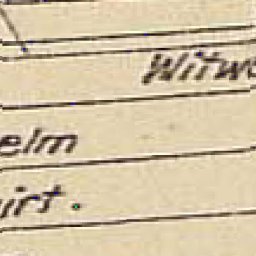 Witwe
elm
irt.